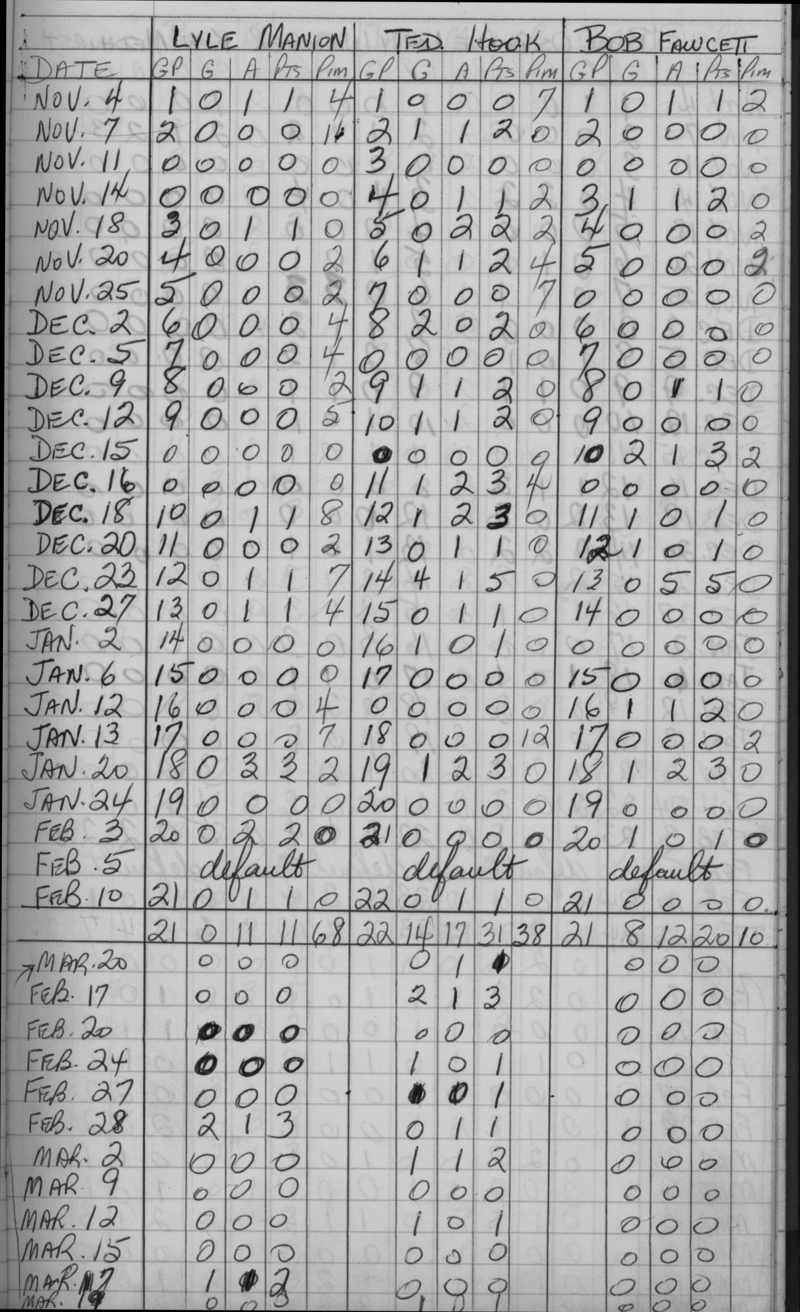 LYLE MANION TED HOOK BOB FAWCETT
DATE GP G A Pts Pim GP G A Pts Pim GP G A Pts Pim
NOV. 4 1 0 1 1 4 1 0 0 0 7 1 0 1 1 2
NOV. 7 2 0 0 0 2 1 1 2 0 2 0 0 0 0
NOV. 11 0 0 0 0 0 3 0 0 0 0 0 0 0 0 0
NOV. 14 0 0 0 0 0 4 0 1 1 2 3 1 1 2 0
NOV. 18 3 0 1 1 0 5 0 2 2 2 4 0 0 0 2
NOV. 20 4 0 0 0 2 6 1 1 2 4 5 0 0 0 2
NOV. 25 5 0 0 0 2 7 0 0 0 7 0 0 0 0 0
DEC. 2 6 0 0 0 4 8 2 0 2 0 6 0 0 0 0
DEC. 5 7 0 0 0 4 0 0 0 0 0 7 0 0 0 0
DEC. 9 8 0 0 0 2 9 1 1 2 0 8 0 1 1 0
DEC. 12 9 0 0 0 5 10 1 1 2 0 9 0 0 0 0
DEC. 15 0 0 0 0 0 0 0 0 0 0 10 2 1 3 2
DEC. 16 0 0 0 0 0 11 1 2 3 4 0 0 0 0 0
DEC. 18 10 0 1 1 8 12 1 2 3 0 11 1 0 1 0
DEC. 20 11 0 0 0 2 13 0 1 1 0 12 1 0 1 0
DEC. 23 12 0 1 1 7 14 4 1 5 0 13 0 5 5 0
DEC. 27 13 0 1 1 4 15 0 1 1 0 14 0 0 0 0
JAN. 2 14 0 0 0 0 16 1 0 1 0 0 0 0 0 0
JAN. 6 15 0 0 0 0 17 0 0 0 0 15 0 0 0 0
JAN. 12 16 0 0 0 4 0 0 0 0 0 16 1 1 2 0
JAN. 13 17 0 0 0 7 18 0 0 0 12 17 0 0 0 2
JAN. 20 18 0 3 3 2 19 1 2 3 0 18 1 2 3 0
JAN. 24 19 0 0 0 0 20 0 0 0 0 19 0 0 0 0
FEB. 3 20 0 2 2 0 21 0 0 0 0 20 1 0 1 0
FEB. 5 default default default
FEB. 10 21 0 1 1 0 22 0 1 1 0 21 0 0 0 0
21 0 11 11 68 22 14 17 31 38 21 8 12 20 10
MAR. 20 0 0 0 0 1 1 0 0 0
FEB. 17 0 0 0 2 1 3 0 0 0
FEB. 20 0 0 0 0 0 0 0 0 0
FEB. 24 0 0 0 1 0 1 0 0 0
FEB. 27 0 0 0 1 0 1 0 0 0
FEB. 28 2 1 3 0 1 1 0 0 0
MAR. 2 0 0 0 1 1 2 0 0 0
MAR. 9 0 0 0 0 0 0 0 0 0
MAR. 12 0 0 0 1 0 1 0 0 0
MAR. 15 0 0 0 0 0 0 0 0 0
MAR. 17 1 1 2 0 0 0 0 0 0
MAR. 0 0 0 0 0 0